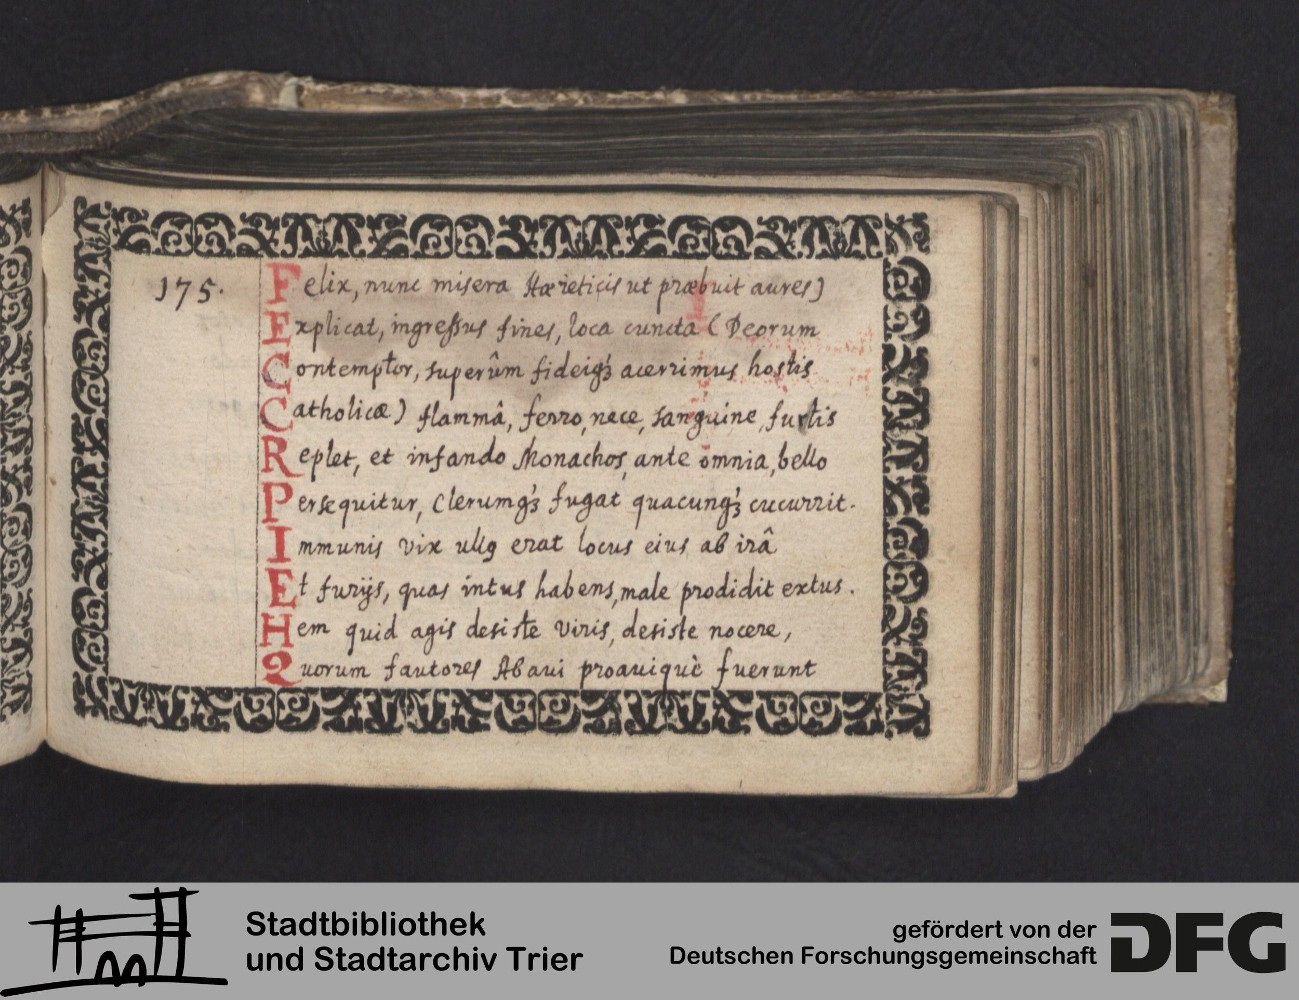 175.
Felix, nunc misera Hæreticis ut præbuit aures)
Explicat, ingressus fines, loca cuncta (Deorum
Contemptor, superûm fideiq₃ acerrimus hostis
Catholicæ) flammâ, ferro, nece, sanguine, furtis
Replet, et infando Monachos, ante omnia, bello
Persequitur, Clerumq₃ fugat quacunq₃ cucurrit.
Immunis vix ullq erat locus eius ab irâ
Et furijs, quas intus habens, male prodidit extus.
Hem quid agis desiste viris, desiste nocere,
Quorum fautores Abaui proauiquè fuerunt
Stadtbibliothek
und Stadtarchiv Trier
gefördert von der
Deutschen Forschungsgemeinschaft
DFG